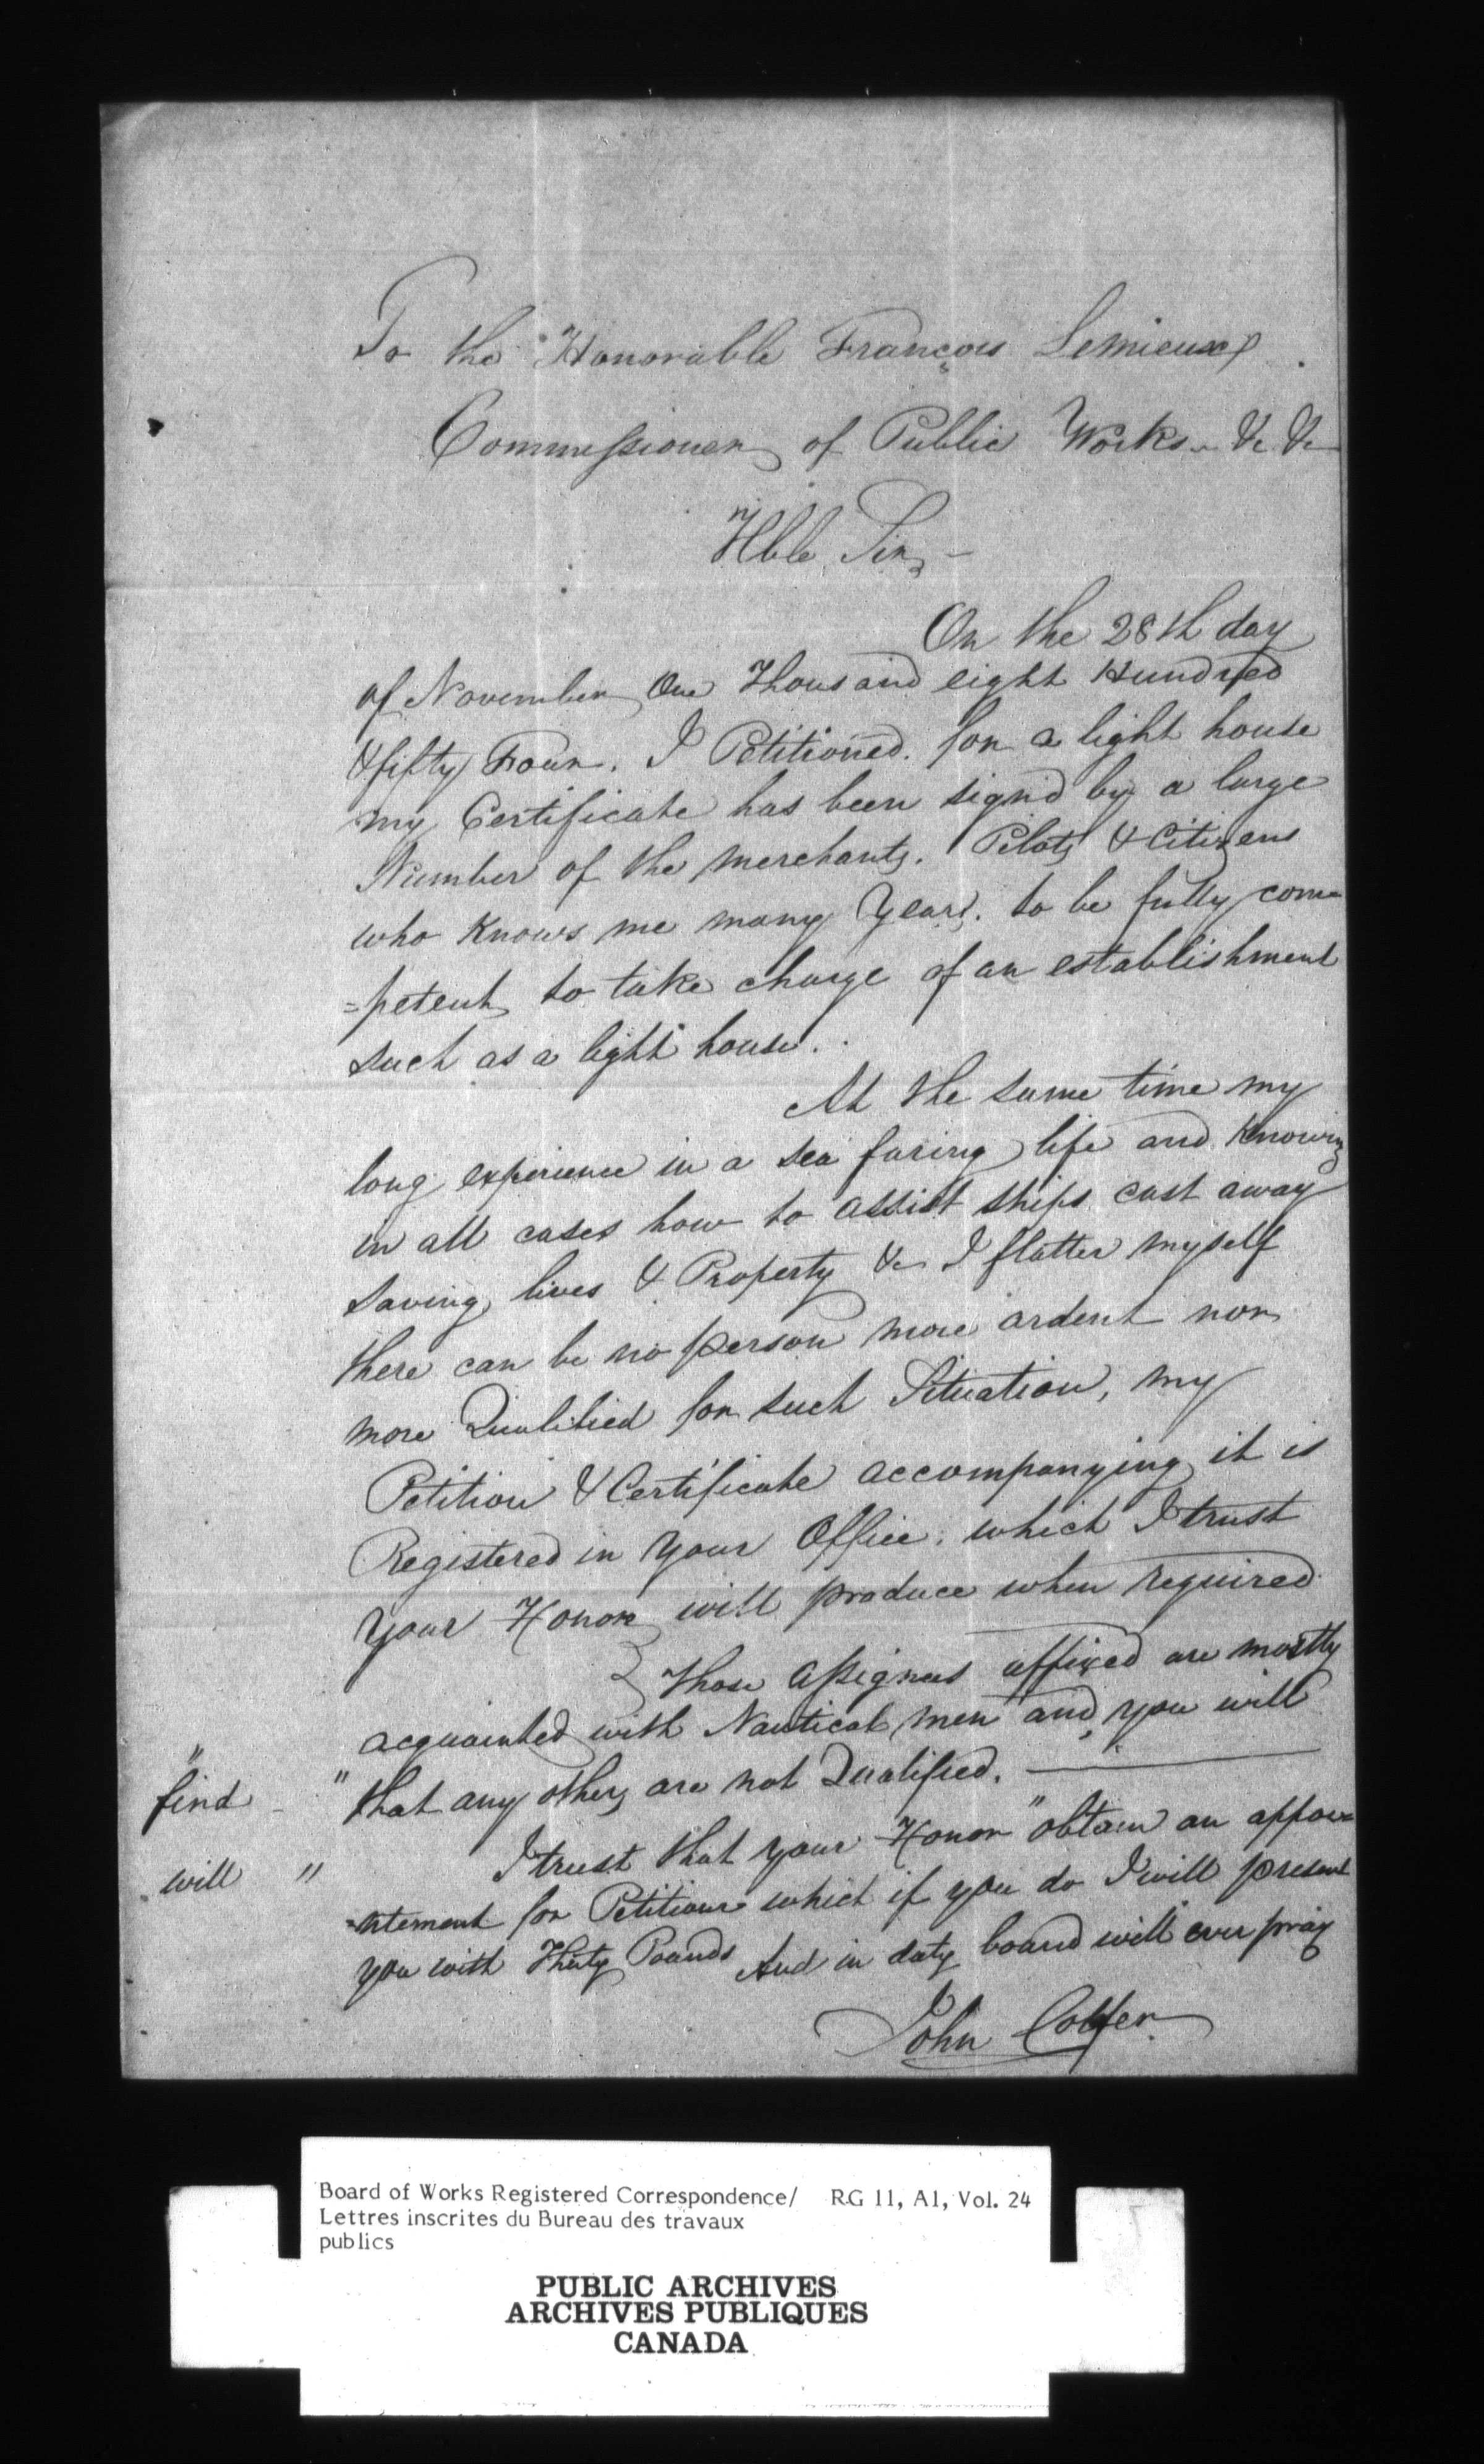 To the Honorable Francois Lemieux
Commissioner of Public Works &c &c
Hble Sir,
On the 28th day
of November One Thousand eight Hundred
& fifty Four. I Petitioned. for a light house
my Certificate has been signd by a large
Number of the merchants. Pilots & Citizens
who Knows me many Years. to be fully com=
=petent to take charge of an establishment
such as a light house.
At the same time my
long experience in a sea faring life and Knowing
in all cases how to assist ships cast away
saving lives & Property &c I flatter myself
there can be no person more ardent nor
more Qualified for such Situation, my
Petition & Certificate accompanying it is
Registered in Your Office. which I trust
Your Honor will produce when required
Those assignees affixed are mostly
acquainted with Nautical men and you will
find " " that any others are not Qualified.
I trust that your Honor " obtain an appoi=
will "
=ntement for Petitioner which if you do I will present
you with Thirty Pounds And in duty bound will ever pray
John
Board of Works Registered Correspondence/ RG 11, A1, Vol. 24
Lettres inscrites du Bureau des travaux
publics
PUBLIC ARCHIVES
ARCHIVES PUBLIQUES
CANADA